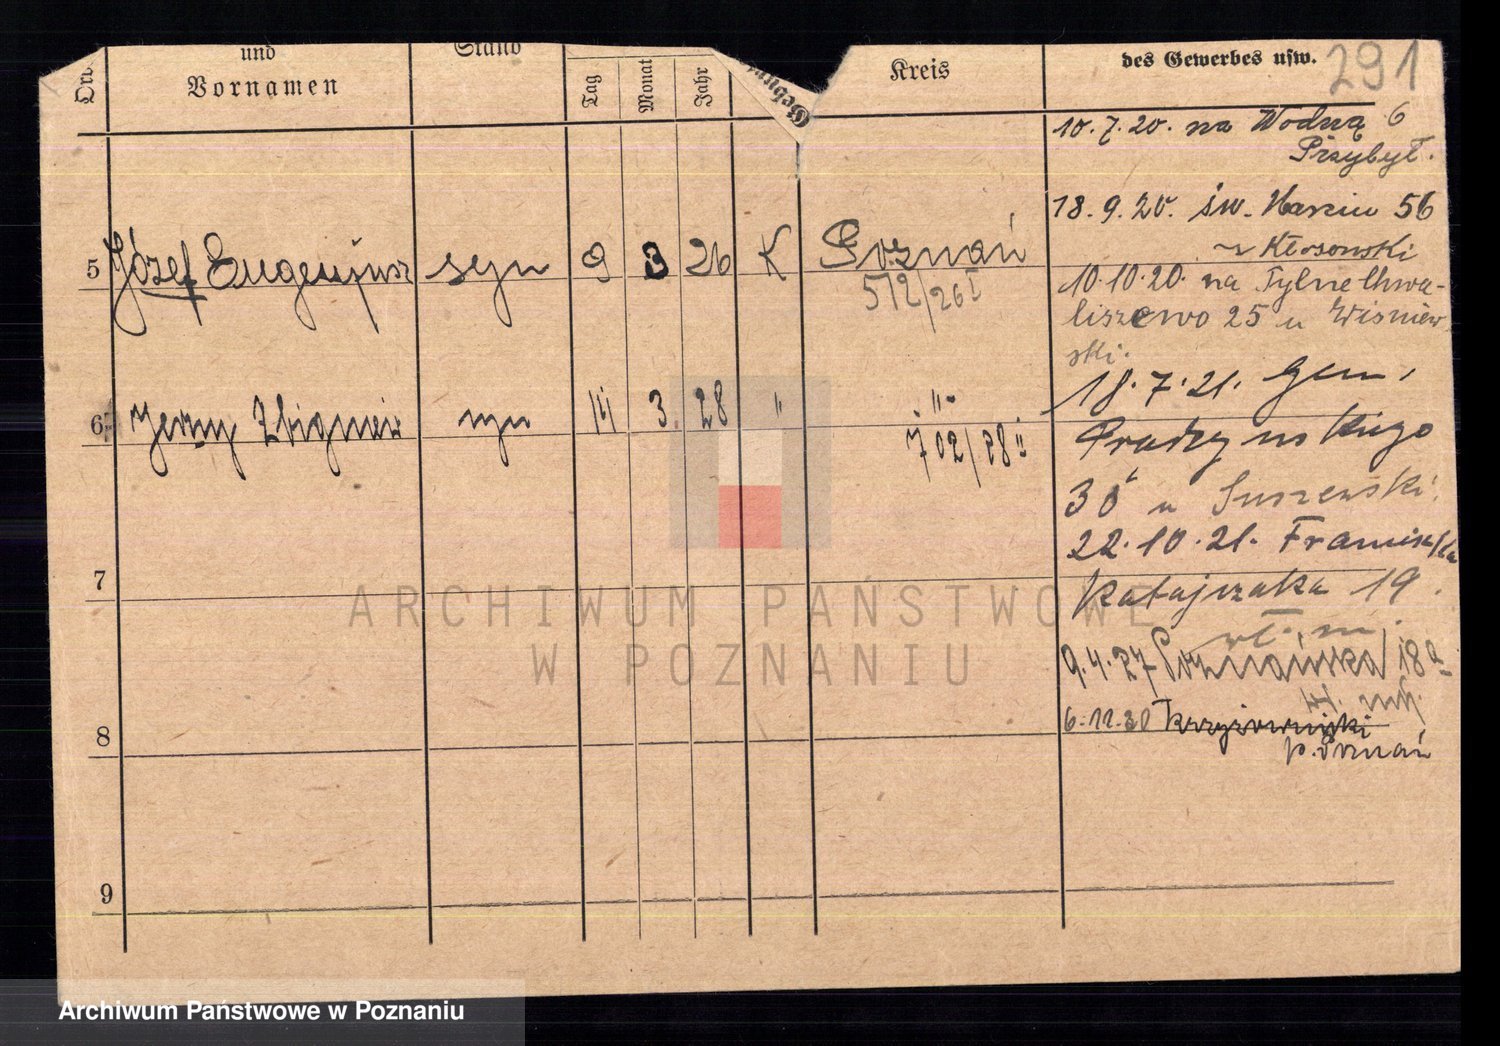 291
und
Vornamen
Stand
Tag
Monat
Jahr
Kreis
des Gewerbes usw.
10.7.20. na Wodną 6
Przybył.
18.9.20. św. Marcin 56
u Kłosowski
5 Józef Eugenjusz syn 9 3 26 K Poznań
512/26 I
10.10.20. na Tylne Chwa-
liszewo 25 u Wisniew
ski.
18.7.21. Gen.
6 Jerzy Zbigniew syn 14 3. 28 " "
702/28 II
Prądzyńskiego
38 u Suszewski.
22.10.21. Franciszka
Ratajczaka 19.
7
9.4.27 Poznańska 18a
6.11.30 Krzyżowniki
p. Poznań
8
9
ARCHIWUM PAŃSTWOWE
W POZNANIU
Archiwum Państwowe w Poznaniu